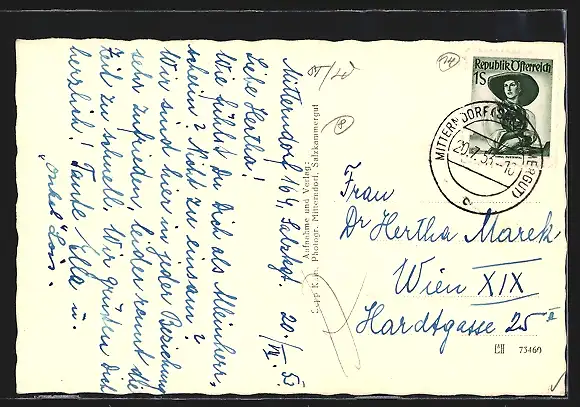 Mitterndorf 164, Salzkgt. 20./VII. 53
Liebe Hertha!
Wie fühlst Du Dich als Alleinherr-
scherin? Nicht zu einsam?
Wir sind hier in jeder Beziehung
sehr zufrieden, leider rennt die
Zeit zu schnell. Wir grüßen Dich
herzlich! Tante Ella u.
Onkel
Aufnahme und Verlag:
Photogr. Mitterndorf, Salzkammergut
Republik Österreich
1S
MITTERNDORF (SALZKAMMERGUT)
20.7.53
Frau
Dr Hertha Marek
Wien XIX
Hardtgasse 25
73460